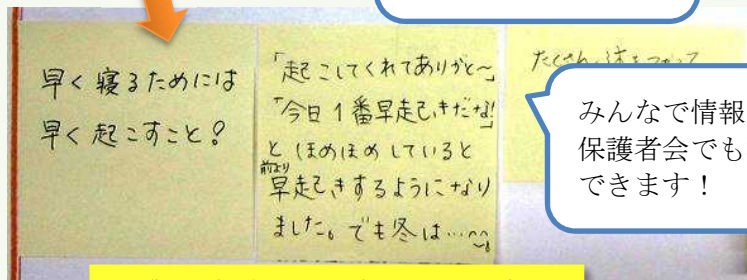 早く寝るためには
早く起こすこと?
「起こしてくれてありがと〜」
「今日1番早起きだな!」
と ほめほめ していると
前より
早起きするようになり
ました。でも冬は…
たくさん
みんなで情報
保護者会でも
できます!